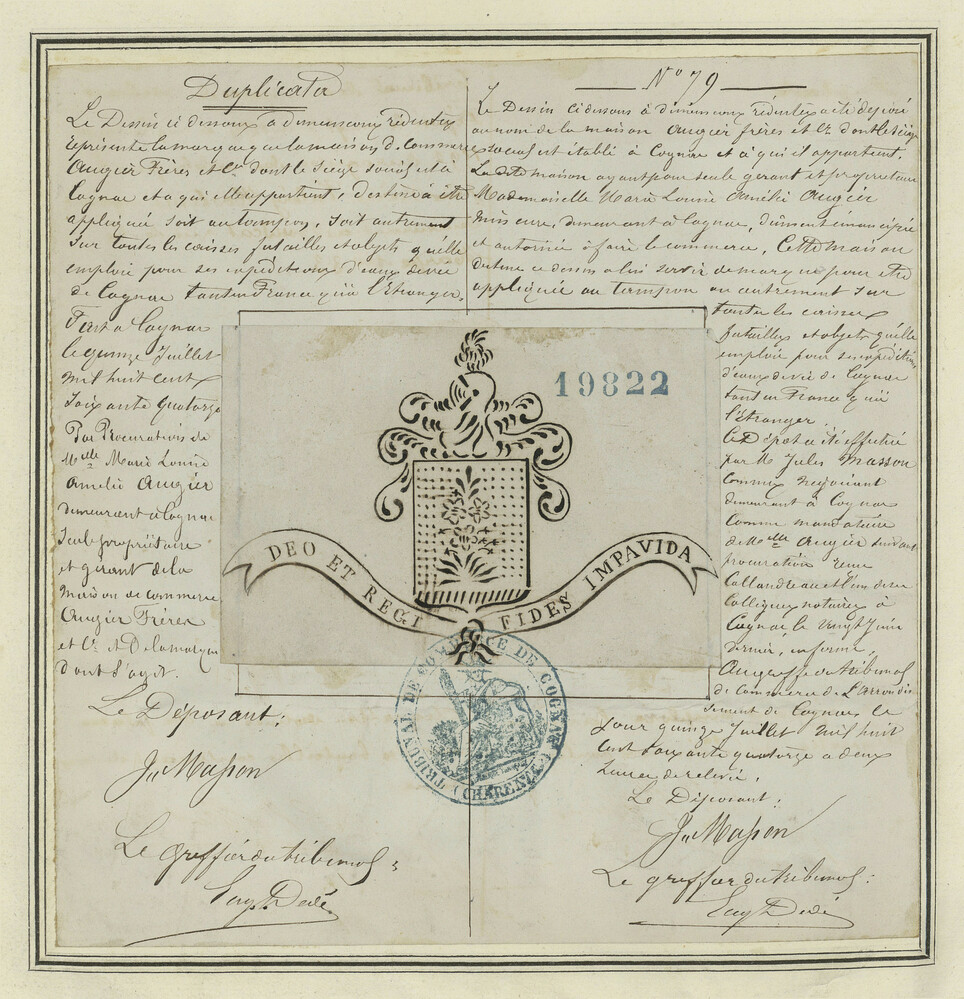 Duplicata
Le Dessin ci dessous à dimensions réduites
représente la marque que la maison de Commerce
Augier Frères et Cie dont le siège social est à
Cognac et a qui elle appartient, destine à être
appliqué soit au tampon, soit autrement
sur toutes les caisses futailles et objets qu'elle
emploie pour ses expéditions d'eaux de vie
de Cognac tant en France qu'à l'Etranger,
Fait a Cognac
le quinze Juillet
mil huit cent
soixante quatorze
Par Procuration de
Melle Marie Louise
Amelie Augier
demeurant à Cognac
seule propriétaire
et gérant de la
maison de commerce
Augier Frères
et Cie et de la marque
dont s'agit.
Le Déposant:
Jes Masson
Le greffier du tribunal:
Eug. Dedé
No 79
Le Dessin ci dessous à dimensions réduites a été déposé
au nom de la maison Augier frères et Cie dont le siège
social est établi à Cognac et à qui il appartient.
La dite maison ayant pour seule gérant et propriétaire
Mademoiselle Marie Louise Amélie Augier
mineure, demeurant à Cognac, dûment émancipée
et autorisée à faire le commerce, Cette maison
destine ce dessin a lui servir de marque pour être
appliquée au tampon ou autrement sur
toutes les caisses
futailles et objets qu'elle
emploie pour ses expéditions
d'eaux de vie de Cognac
tant en France qu'à
l'étranger.
Ce Dépot a été effectué
par M Jules Masson
Commis négociant
demeurant à Cognac
Comme mandataire
de Melle Augier suivant
procuration reçue
Callandreau et l'un de ses
Collègues notaires à
Cognac, le vingt Juin
dernier, enforme,
Au greffe du tribunal
de Commerce de L'arrondis
sement de Cognac le
jour quinze Juillet mil huit
cent soixante quatorze a deux
heures de relevée.
Le Déposant:
Jes Masson
Le greffier du tribunal:
Eug Dedé
19822
DEO ET REGI FIDES IMPAVIDA
TRIBUNAL DE COMMERCE DE COGNAC (CHARENTE)